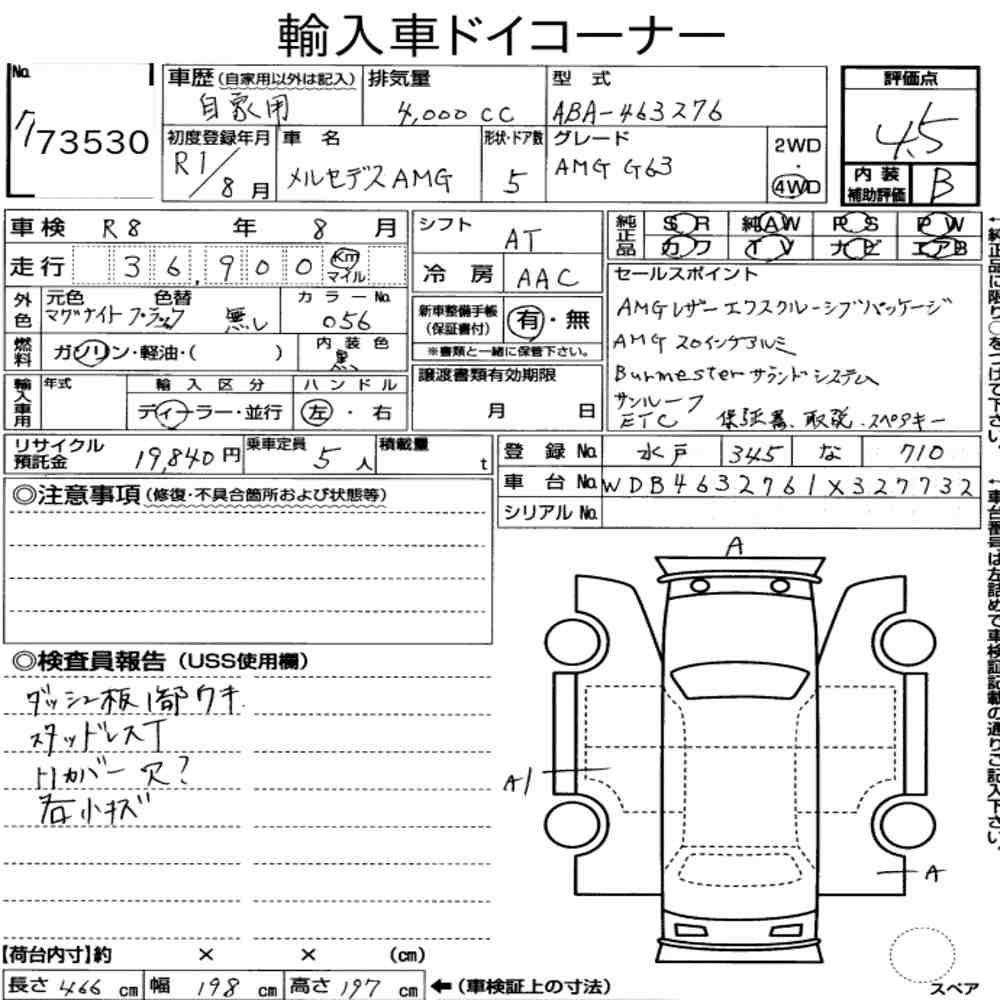 輸入車ドイコーナー
No. 73530
車歴 (自家用以外は記入) 自家用
排気量 4,000 CC
型式 ABA-463276
評価点 4.5
初度登録年月 R1/8月
車名 メルセデスAMG
形状・ドア数 5
グレード AMG G63
2WD・4WD
内装補助評価 B
車検 R8 年 8 月
走行 36,900 Km マイル
シフト AT
冷房 AAC
純正品 SR 純AW PS PW
カワ TV ナビ エアB
外色 元色 マグナイトブラック 色替 無し カラーNo. 056
燃料 ガソリン・軽油・( ) 内装色 黒
新車整備手帳(保証書付) 有・無
※書類と一緒に保管下さい。
セールスポイント
AMGレザーエクスクルーシブパッケージ
AMG 20インチアルミ
Burmesterサランドシステム
サンルーフ
ETC 保証書、取説、スペアキー
輸入車用 年式 輸入区分 ディーラー・並行 ハンドル 左・右
譲渡書類有効期限 月 日
リサイクル預託金 19,840円
乗車定員 5人
積載量 t
登録No. 水戸 345 な 710
車台No. WDB4632761X327732
シリアルNo.
◎注意事項(修復・不具合箇所および状態等)
◎検査員報告(USS使用欄)
ダッシュ板1部ウキ
スタッドレスT
トリカバー穴?
石小キズ
A
A1
A
【荷台内寸】約 × × (cm)
長さ 466 cm 幅 198 cm 高さ 197 cm ←(車検証上の寸法)
スペア
←純正品に限り○をつけて下さい。
←車台番号は左詰めで車検証記載の通りご記入下さい。